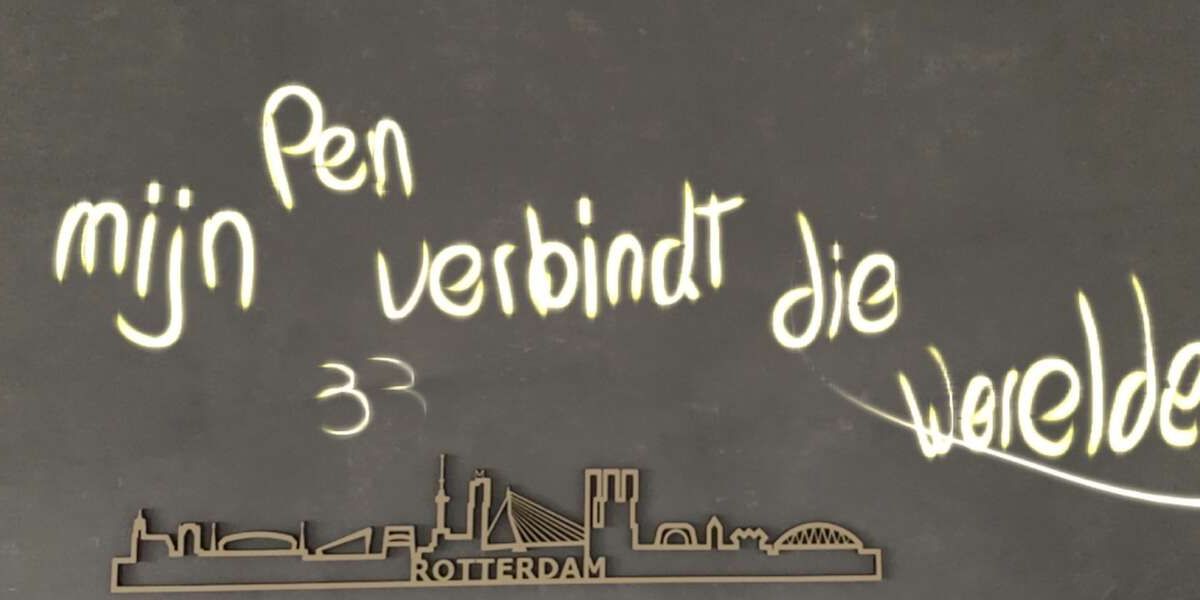 mijn Pen verbindt die werelde
33
ROTTERDAM